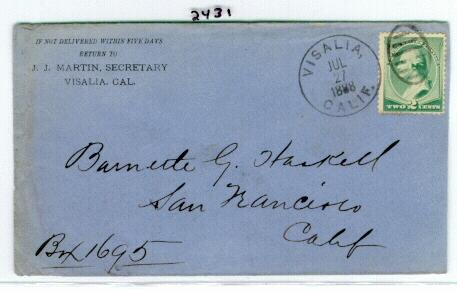 2431
IF NOT DELIVERED WITHIN FIVE DAYS
RETURN TO
J. J. MARTIN, SECRETARY
VISALIA, CAL.
VISALIA,
JUL
27
1888
CALIF.
TWO 2 CENTS
Burnette G. Haskell
San Francisco
Calif
Box 1695